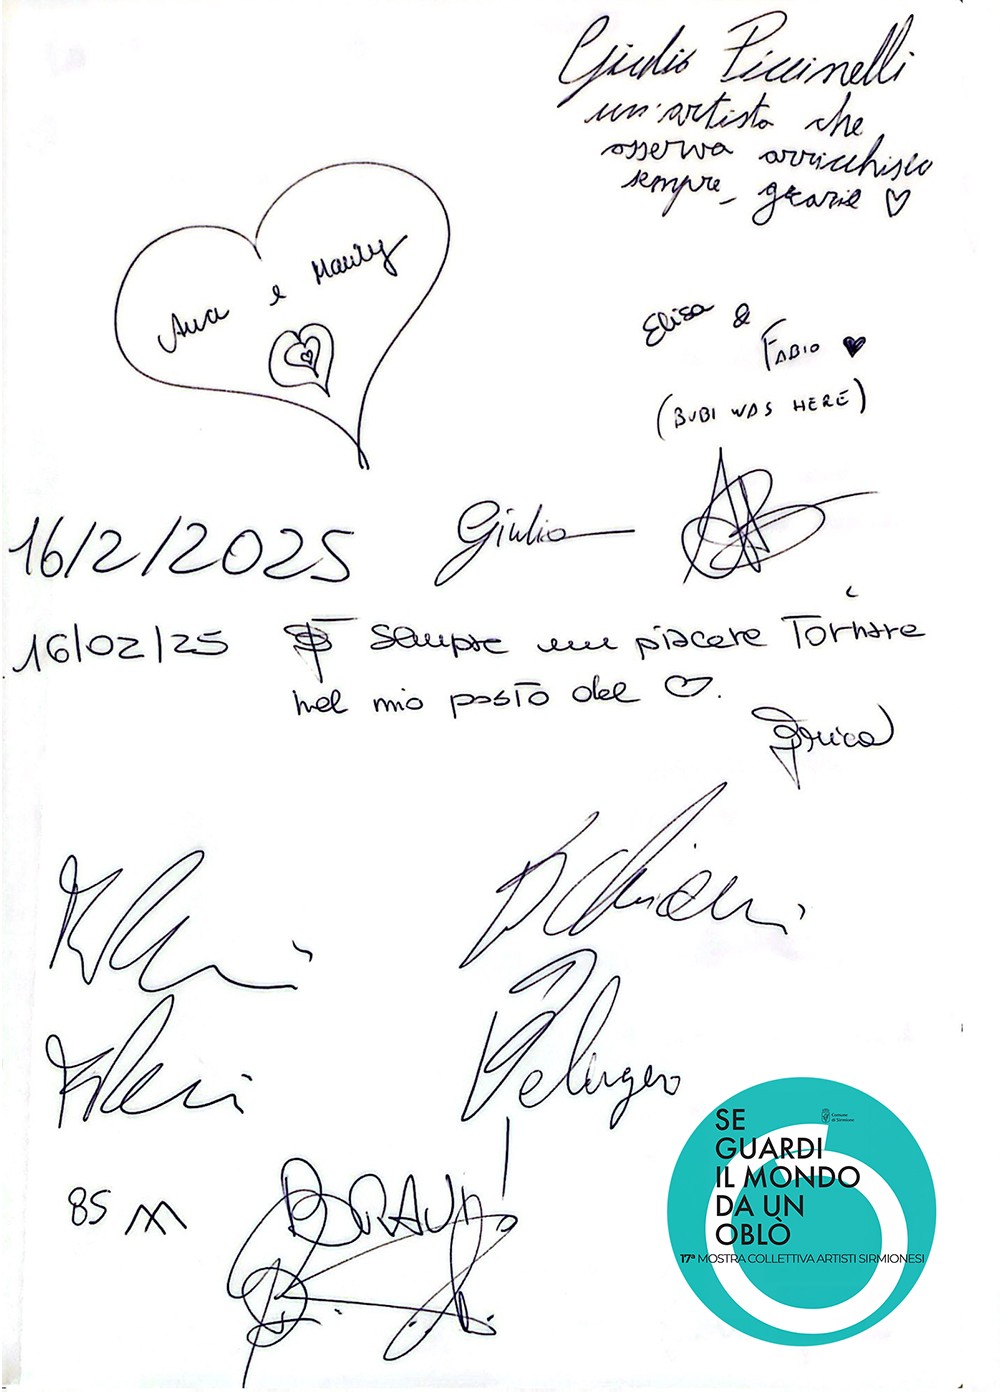 Giulio Piccinelli
un'artista che
osserva arricchisce
sempre, grazie ♡
Ana e Mauity
Elisa &
FABIO ♥
(BUBI WAS HERE)
16/2/2025 Giulia
16/02/25 È sempre un piacere Tornare
nel mio posto del ♡.
Erica
85
BRAVI!
SE
GUARDI
IL MONDO
DA UN
OBLÒ
Comune
di Sirmione
17ª MOSTRA COLLETTIVA ARTISTI SIRMIONESI